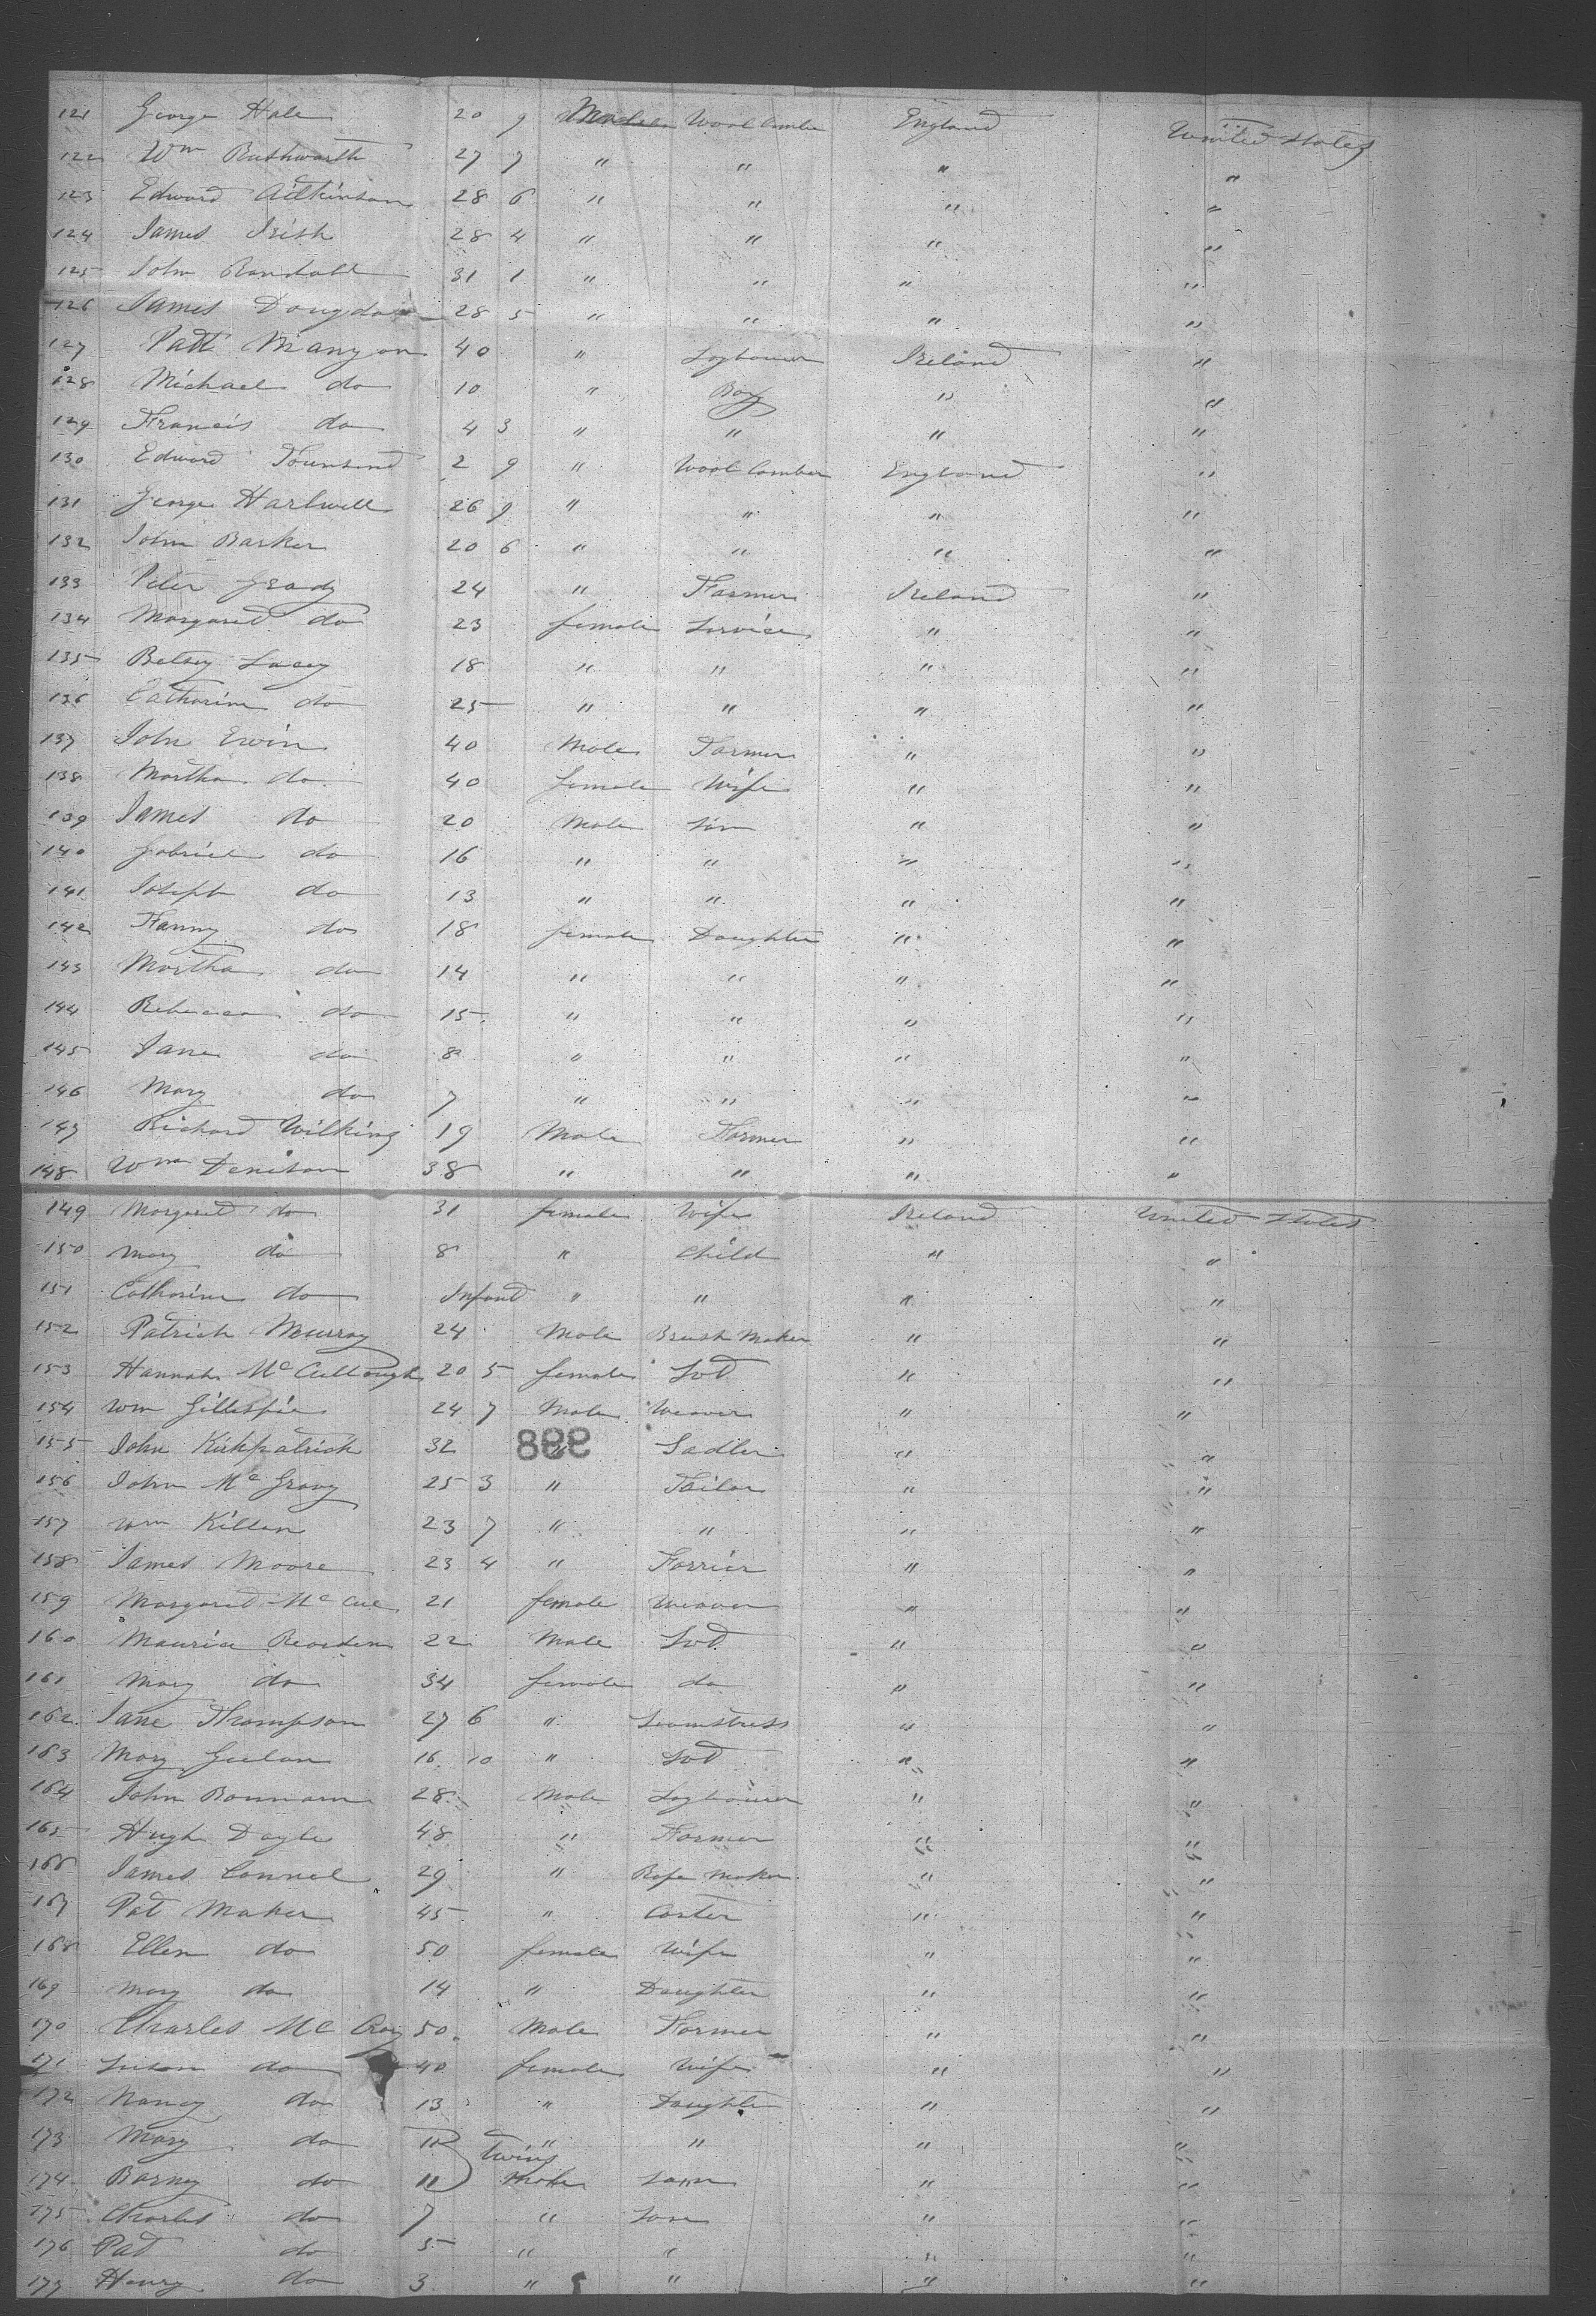 121 George Hale 20 9 Male Wool Comber England United States
122 Wm Rushworth 27 7 " " " "
123 Edward Aitkinson 28 6 " " " "
124 James Irish 28 4 " " " "
125 John Randall 31 1 " " " "
126 James 28 5 " " " "
127 Patt Mangan 40 " Laybourer Ireland "
128 Michael do 10 " Boy " "
129 Francis do 4 3 " " " "
130 Edward Townsend 2 9 " Wool Comber England "
131 George Hartwell 26 9 " " " "
132 John Barker 20 6 " " " "
133 Peter Grady 24 " Farmer Ireland "
134 Margaret do 23 female Service " "
135 Betsy Lacey 18 " " " "
136 Catharine do 25 " " " "
137 John Erwin 40 Male Farmer " "
138 Martha do 40 female Wife " "
139 James do 20 Male Son " "
140 Gabriel do 16 " " " "
141 Joseph do 13 " " " "
142 Fanny do 18 female Daughter " "
143 Martha do 14 " " " "
144 Rebecca do 15 " " " "
145 Jane do 8 " " " "
146 Mary do 7 " " " "
147 Richard Wilking 19 Male Farmer " "
148 Wm Denison 38 " " " "
149 Margaret do 31 female Wife Ireland United States
150 Mary do 8 " Child " "
151 Catharine do Infant " " " "
152 Patrick Murray 24 Male Brush Maker " "
153 Hannah McCullough 20 5 female Svt " "
154 Wm Gillespie 24 7 Male Weaver " "
155 John Kirkpatrick 32 " Sadler " "
888
156 John McGravy 25 3 " Tailor " "
157 Wm Killen 23 7 " " " "
158 James Moore 23 4 " Farrier " "
159 Margaret McCue 21 female Weaver " "
160 Maurice Reorden 22 Male Svt " "
161 Mary do 34 female do " "
162 Jane Thompson 27 6 " Seamstress " "
163 Mary Geelan 16 10 " Svt " "
164 John 28 Male Laybourer " "
165 Hugh Doyle 48 " Farmer " "
166 James Connel 29 " Rope Maker " "
167 Pat Maher 45 " Carter " "
168 Ellen do 50 female Wife " "
169 Mary do 14 " Daughter " "
170 Charles Mc Cray 50 Male Farmer " "
171 Susan do 40 female Wife " "
172 Nancy do 13 " Daughter " "
173 Mary do 11 twins " " " "
174 Barney do 11 Male Son " "
175 Charles do 7 " Son " "
176 Pat do 5 " " " "
177 Henry do 3 " " " "